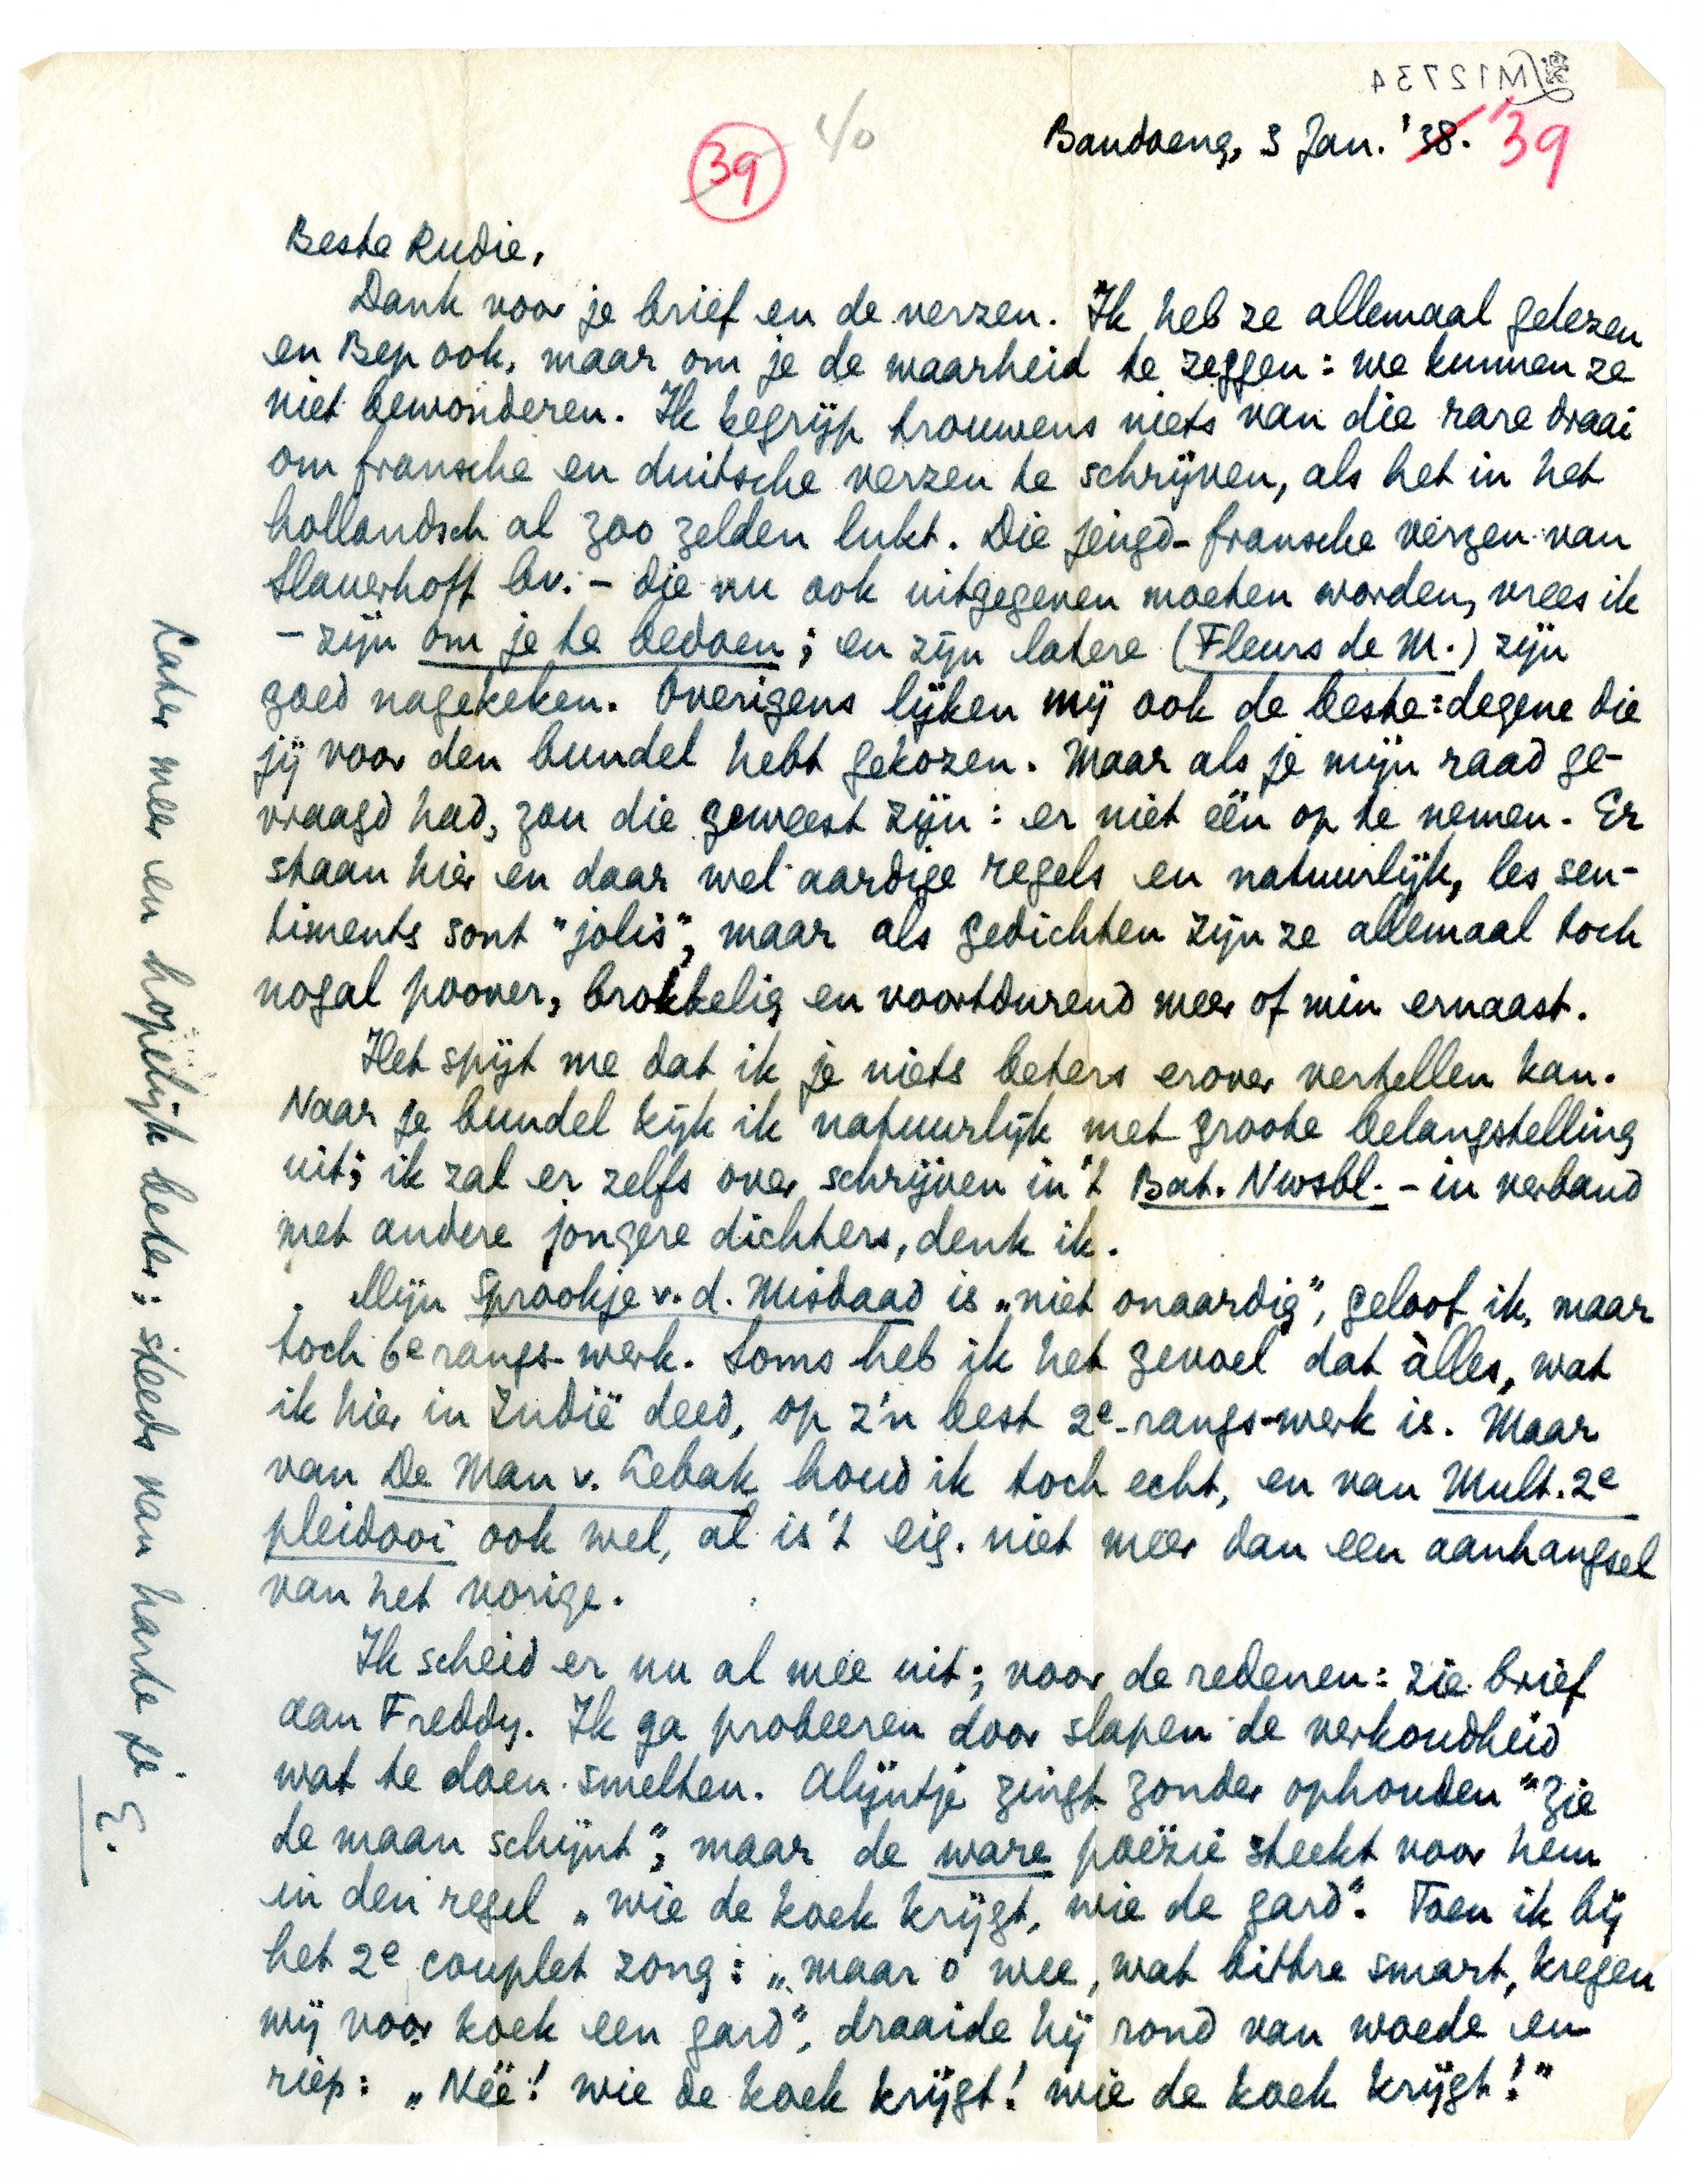 M12734
39
40
Bandoeng, 3 Jan. '38. '39
Beste Rudie,
Dank voor je brief en de verzen. Ik heb ze allemaal gelezen
en Bep ook, maar om je de waarheid te zeggen: we kunnen ze
niet bewonderen. Ik begrijp trouwens niets van die rare draai
om fransche en duitsche verzen te schrijven, als het in het
hollandsch al zoo zelden lukt. Die jeugd-fransche verzen van
Slauerhoff bv. – die nu ook uitgegeven moeten worden, vrees ik
– zijn om je te bedoen; en zijn latere (Fleurs de M.) zijn
goed nagekeken. Overigens lijken mij ook de beste: degene die
jij voor den bundel hebt gekozen. Maar als je mijn raad ge-
vraagd had, zou die geweest zijn: er niet één op te nemen. Er
staan hier en daar wel aardige regels en natuurlijk, les sen-
timents sont "jolis", maar als gedichten zijn ze allemaal toch
nogal poover, brokkelig en voortdurend meer of min ernaast.
Het spijt me dat ik je niets beters erover vertellen kan.
Naar je bundel kijk ik natuurlijk met groote belangstelling
uit; ik zal er zelfs over schrijven in 't Bat. Nwsbl. – in verband
met andere jongere dichters, denk ik.
Mijn Sprookje v. d. Misdaad is „niet onaardig", geloof ik, maar
toch 6e rangs-werk. Soms heb ik het gevoel dat àlles, wat
ik hier in Indië deed, op z'n best 2e-rangs-werk is. Maar
van De Man v. Lebak houd ik toch echt, en van Mult. 2e
pleidooi ook wel, al is 't eig. niet meer dan een aanhangsel
van het vorige.
Ik scheid er nu al mee uit; voor de redenen: zie brief
aan Freddy. Ik ga probeeren door slapen de verkoudheid
wat te doen smelten. Alijntje zingt zonder ophouden "Zie
de maan schijnt", maar de ware poëzie steekt voor hem
in den regel „wie de koek krijgt, wie de gard". Toen ik bij
het 2e couplet zong: „maar o wee, wat bittre smart, kregen
wij voor koek een gard", draaide hij rond van woede en
riep: „Néé! wie de koek krijgt! wie de koek krijgt!"
Later meer en hopelijk beter; steeds van harte je
E.